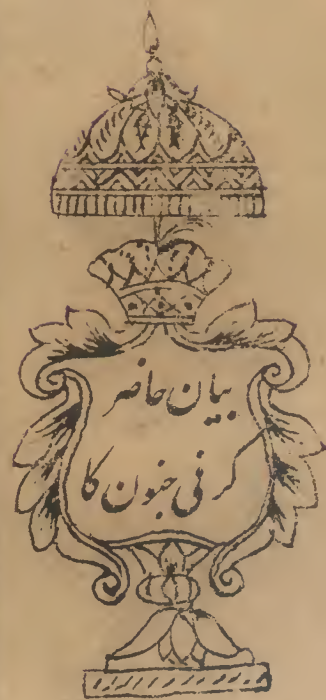 بیان حاضر
کرنی جنون کا